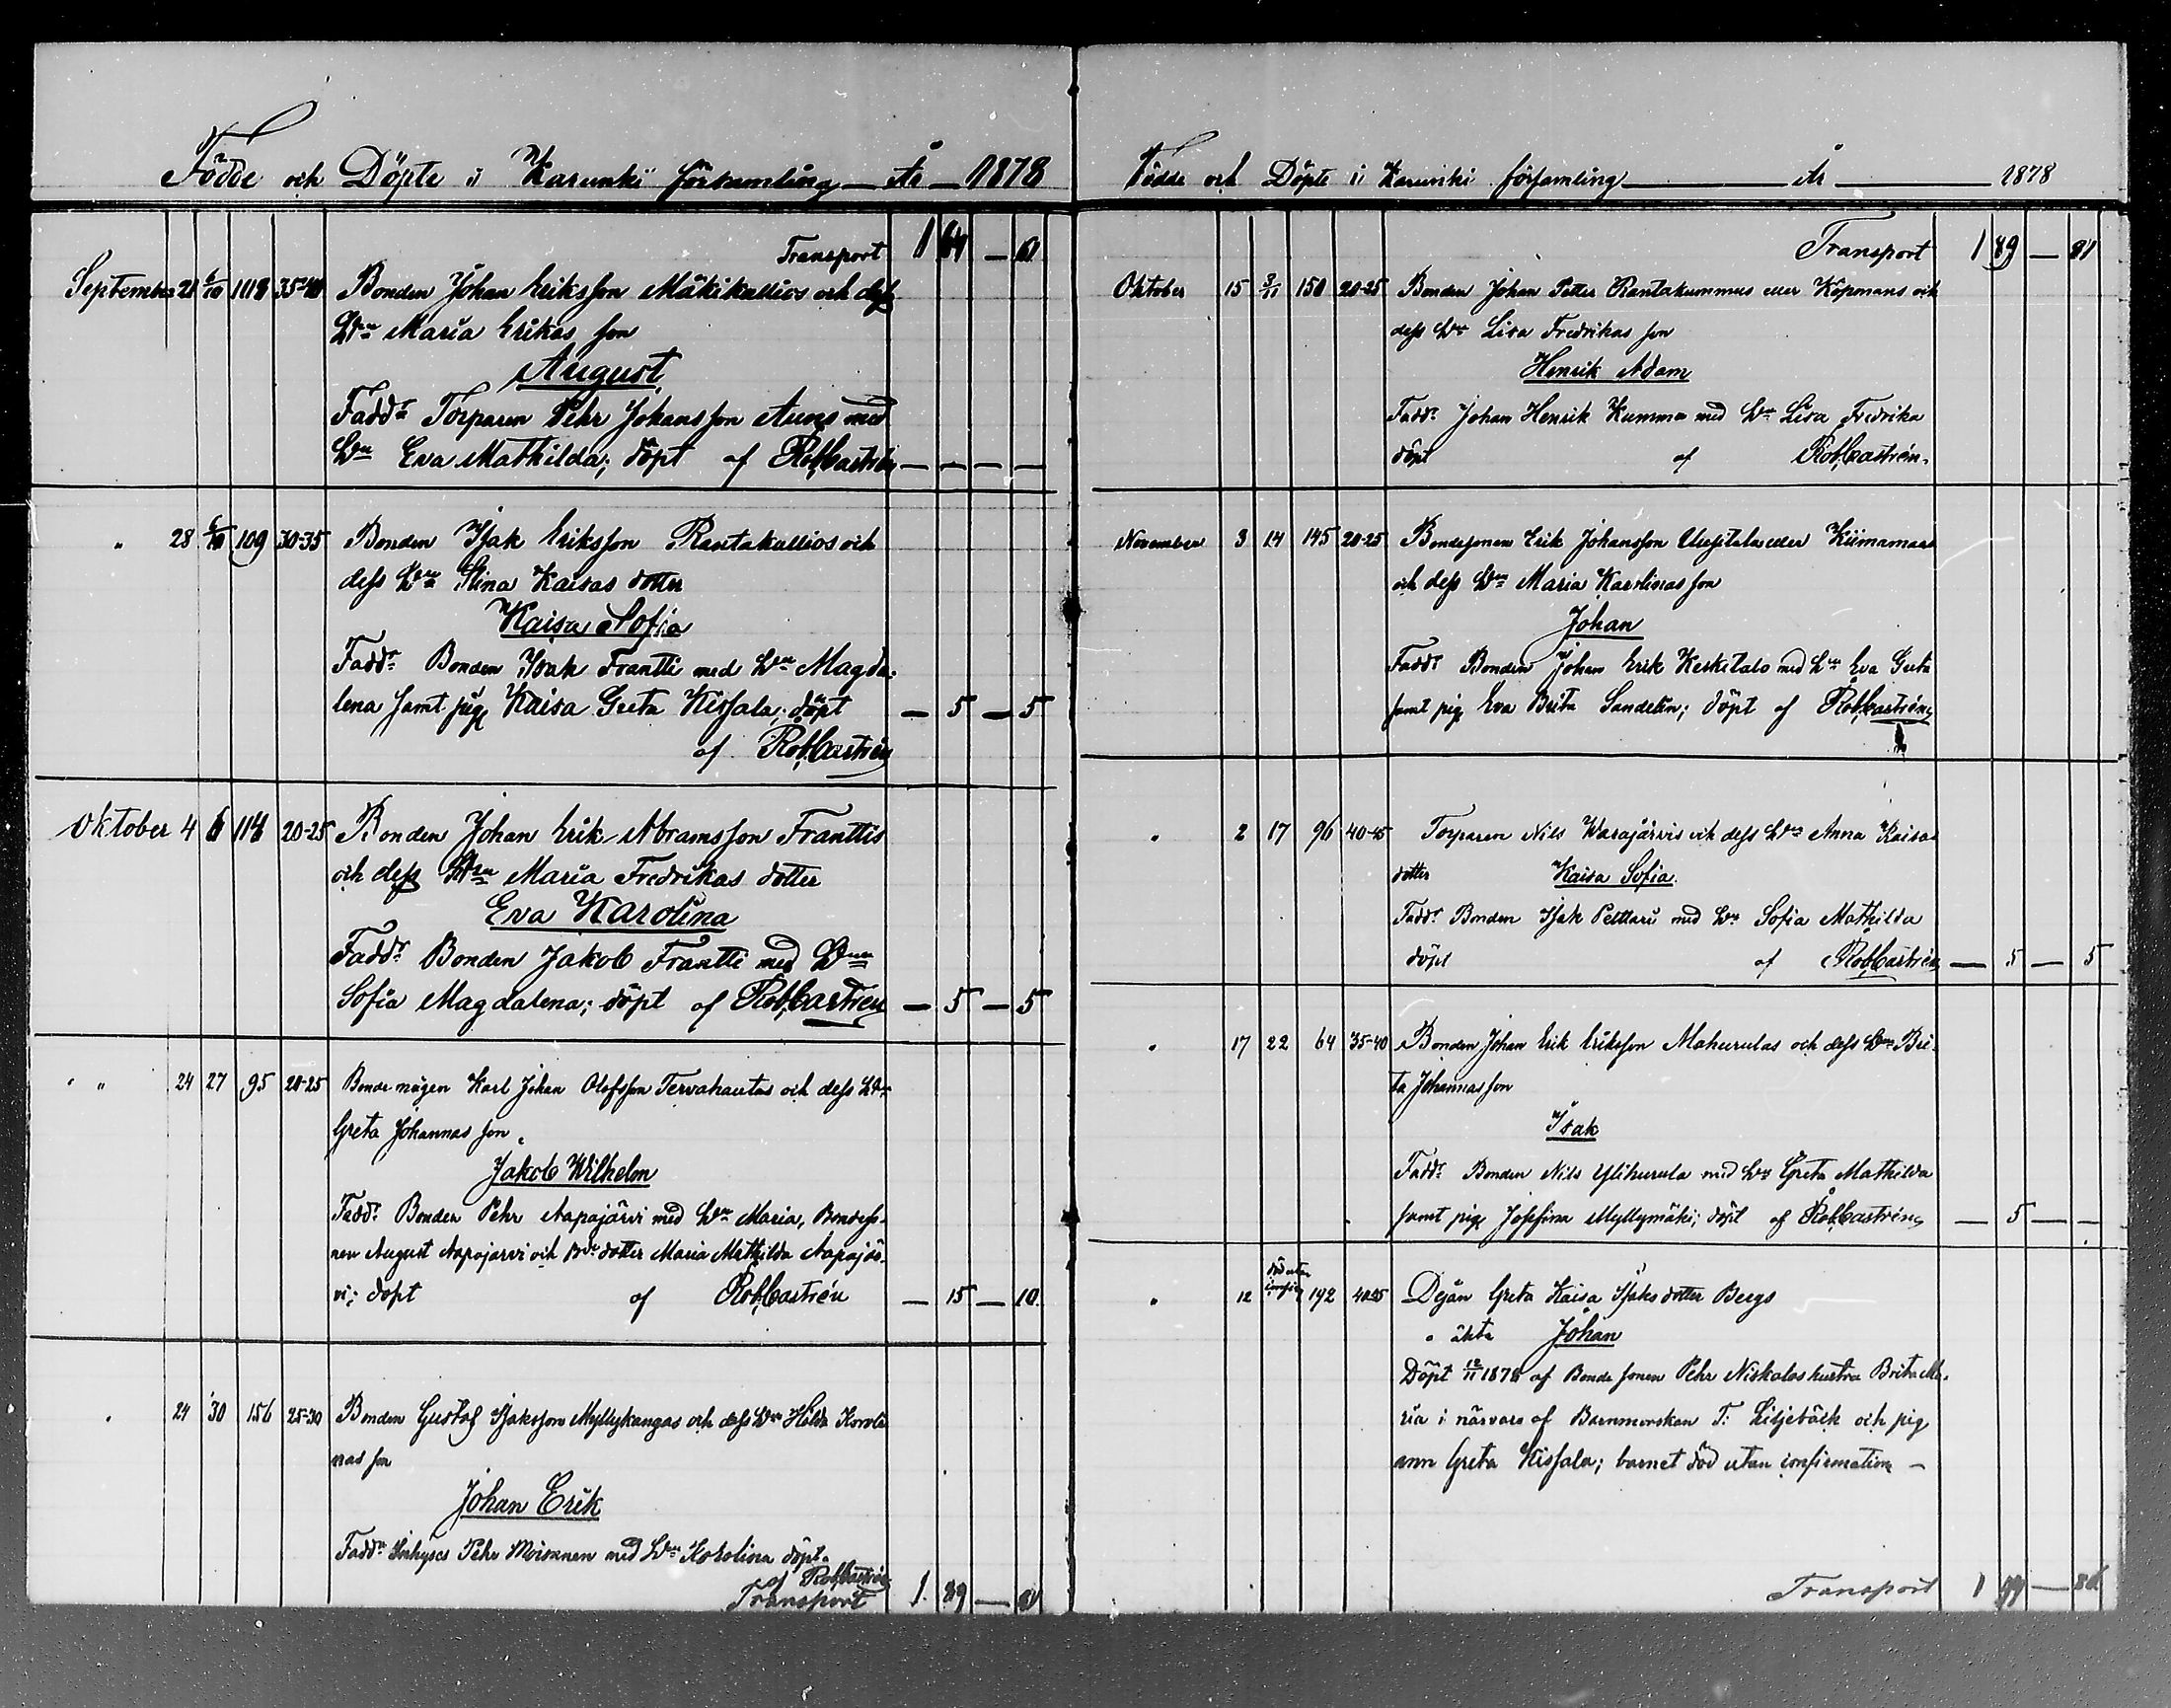 Födde och Döpte i Karunki församling År 1878
Transport 1 64 — 61
September 21 6/10 118 35-40 Bonden Johan Eriksson Mäkikallios och dess
H:u Maria Erikas son
August
Fadd:r Torparen Pehr Johansson Auno med
H:u Eva Mathilda; döpt af Rob. Castrén — — — —
" 28 6/10 109 30-35 Bonden Isak Eriksson Rantakallios och
dess H:u Stina Kaisas dotter
Kaisa Sofia
Fadd:r Bonden Isak Frantti med H:u Magda-
lena samt pig. Kaisa Greta Kissala; döpt — 5 — 5
af Rob. Castrén
Oktober 4 6 20-25 Bonden Johan Erik Abramsson Franttis
och dess H:u Maria Fredrikas dotter
Eva Karolina
Fadd:r Bonden Jakob Frantti med H:u
Sofia Magdalena; döpt af Rob. Castrén — 5 — 5
" 24 27 95 20-25 Bonde mågen Karl Johan Olofsson Tervahautas och dess H:u
Greta Johannas son
Jakob Wilhelm
Fadd:r Bonden Pehr Aapajärvi med H:u Maria, Bondesso-
nen August Aapajärvi och B:de dotter Maria Mathilda Aapajär-
vi; döpt af Rob. Castrén — 15 — 10
" 24 30 156 25-30 Bonden Gustaf Isaksson Myllykangas och dess H:u Hilda Karoli
nas son
Johan Erik
Fadd:r Inhyses Pehr Moisanen med H:u Karolina döpt
af Rob. Castrén
Transport 1 89 — 81
Födde och Döpte i Karunki församling År 1878
Transport 1 89 — 81
Oktober 15 3/11 150 20-25 Bonden Johan Petter Rantakummus eller Köpmans och
dess H:u Lisa Fredrikas son
Henrik Adam
Fadd:r Johan Henrik Kumma med H:u Lisa Fredrika
döpt af Rob. Castrén
November 3 14 145 20-25 Bondesonen Erik Johansson eller Kiimamaas
och dess H:u Maria Karolinas son
Johan
Fadd:r Bonden Johan Erik Keskitalo med H:u Eva Greta
samt pig. Eva Brita Sandelin; döpt af Rob. Castrén
" 2 17 96 40-45 Torparen Nils Warajärvis och dess H:u Anna Kaisas
dotter Kaisa Sofia
Fadd:r Bonden Isak Pelttari med H:u Sofia Mathilda
döpt af Rob. Castrén — 5 — 5
" 17 22 64 35-40 Bonden Johan Erik Eriksson Alahurulas och dess H:u Bri-
ta Johannas son
Isak
Fadd:r Bonden Nils Ylihurula med H:u Greta Mathilda
samt pig. Josefina Myllymäki; döpt af Rob. Castrén — 5 — —
död utan
" 12 confirm 192 Dejan Greta Kaisa Isaks dotter Bergs
o äkta Johan
Döpt 12/11 1878 af Bonde sonen Pehr Niskalas hustru Brita Ma-
ria i närvaro af Barnmorskan T: Liljebäck och pig
ann Greta Kissala; barnet död utan confirmation —
Transport 1 99 — 86